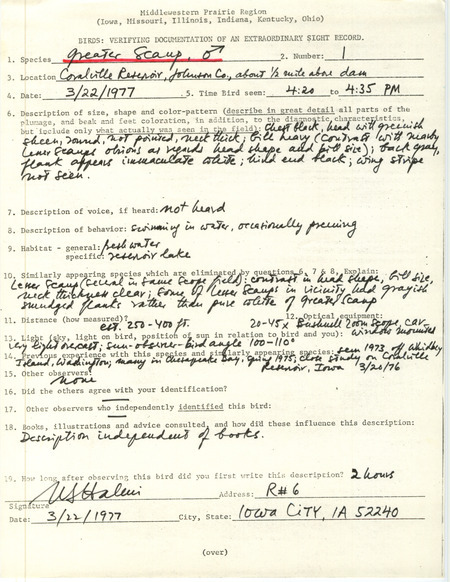 Middlewestern Prairie Region
(Iowa, Missouri, Illinois, Indiana, Kentucky, Ohio)
BIRDS: VERIFYING DOCUMENTATION OF AN EXTRAORDINARY SIGHT RECORD.
1. Species Greater Scaup, ♂ 2. Number: 1
3. Location Coralville Reservoir, Johnson Co, about ½ mile above dam
4. Date: 3/22/1977 5. Time Bird seen: 4:20 to 4:35 PM
6. Description of size, shape and color-pattern (describe in great detail all parts of the
plumage, and beak and feet coloration, in addition, to the diagnostic characteristics,
but include only what actually was seen in the field): Chest black, head with greenish
sheen, round, not pointed, neck thick; bill heavy (contrast with nearby
Lesser Scaups obvious as regards head shape and bill size); back gray,
flank appears immaculate white; hind end black; wing stripe
not seen.
7. Description of voice, if heard: not heard
8. Description of behavior: swimming in water, occasionally preening
9. Habitat - general: fresh water
specific: reservoir lake
10. Similarly appearing species which are eliminated by questions 6, 7 & 8, Explain:
Lesser Scaup (several in same scope field): contrast in head shape, bill size,
neck thickness clear; some of Lesser Scaups in vicinity had grayish
smudged flanks rather than pure white of Greater Scaup
11. Distance (how measured)? est. 250-400 ft. 12. Optical equipment:
20-45x Bushnell Zoom Scope, car-
window mounted
13. Light (sky, light on bird, position of sun in relation to bird and you):
sun-observer-bird angle 100-110°
14. Previous experience with this species and similarly appearing species: seen 1973 off Whidbey
Island, Washington; many in Chesapeake Bay, spring 1975; close study on Coralville
Reservoir, Iowa 3/20/76
15. Other observers: None
16. Did the others agree with your identification? —
17. Other observers who independently identified this bird: —
18. Books, illustrations and advice consulted, and how did these influence this description:
Description independent of books.
19. How long after observing this bird did you first write this description? 2 hours
Signature Address: R#6
Date: 3/22/1977 City, State: Iowa City, IA 52240
(over)